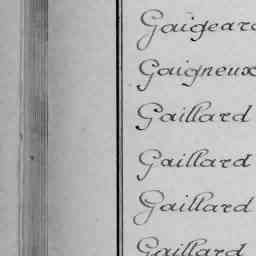 Gaigeard
Gaigneux
Gaillard
Gaillard
Gaillard
Gaillard